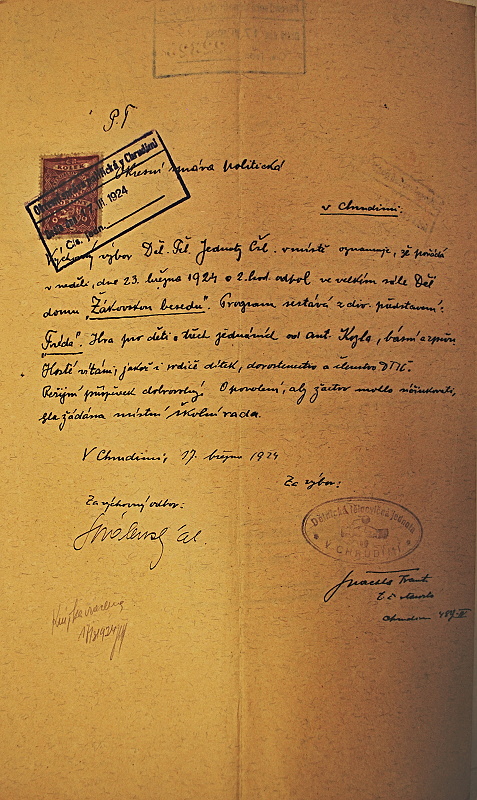 P.T.
Okresní správa politická
v Chrudimi.
Okresní správa politická v Chrudimi
III. 1924
Čís. jedn.
Výchovný výbor Děl. Těl. Jednoty Čsl. v místě oznamuje, že pořádá
v neděli, dne 23. března 1924 o 2. hod. odpol. ve velkém sále Děl
domu „Žákovskou besedu“. Program sestává z div. představení:
„Frída“. Hra pro děti o třech jednáních od Ant. Kozla, básní a zpěvu.
Hosté vítáni, jakož i rodiče dítek, dorostenstvo a členstvo DTJČ.
Režijní příspěvek dobrovolný. O povolení, aby žactvo mohlo účinkovati,
byla žádána místní školní rada.
V Chrudimi, 17. března 1924
Za výbor:
Za výchovný odbor:
Dělnická tělocvičná jednota
V CHRUDIMI
Frant.
t. č.
Chrudim